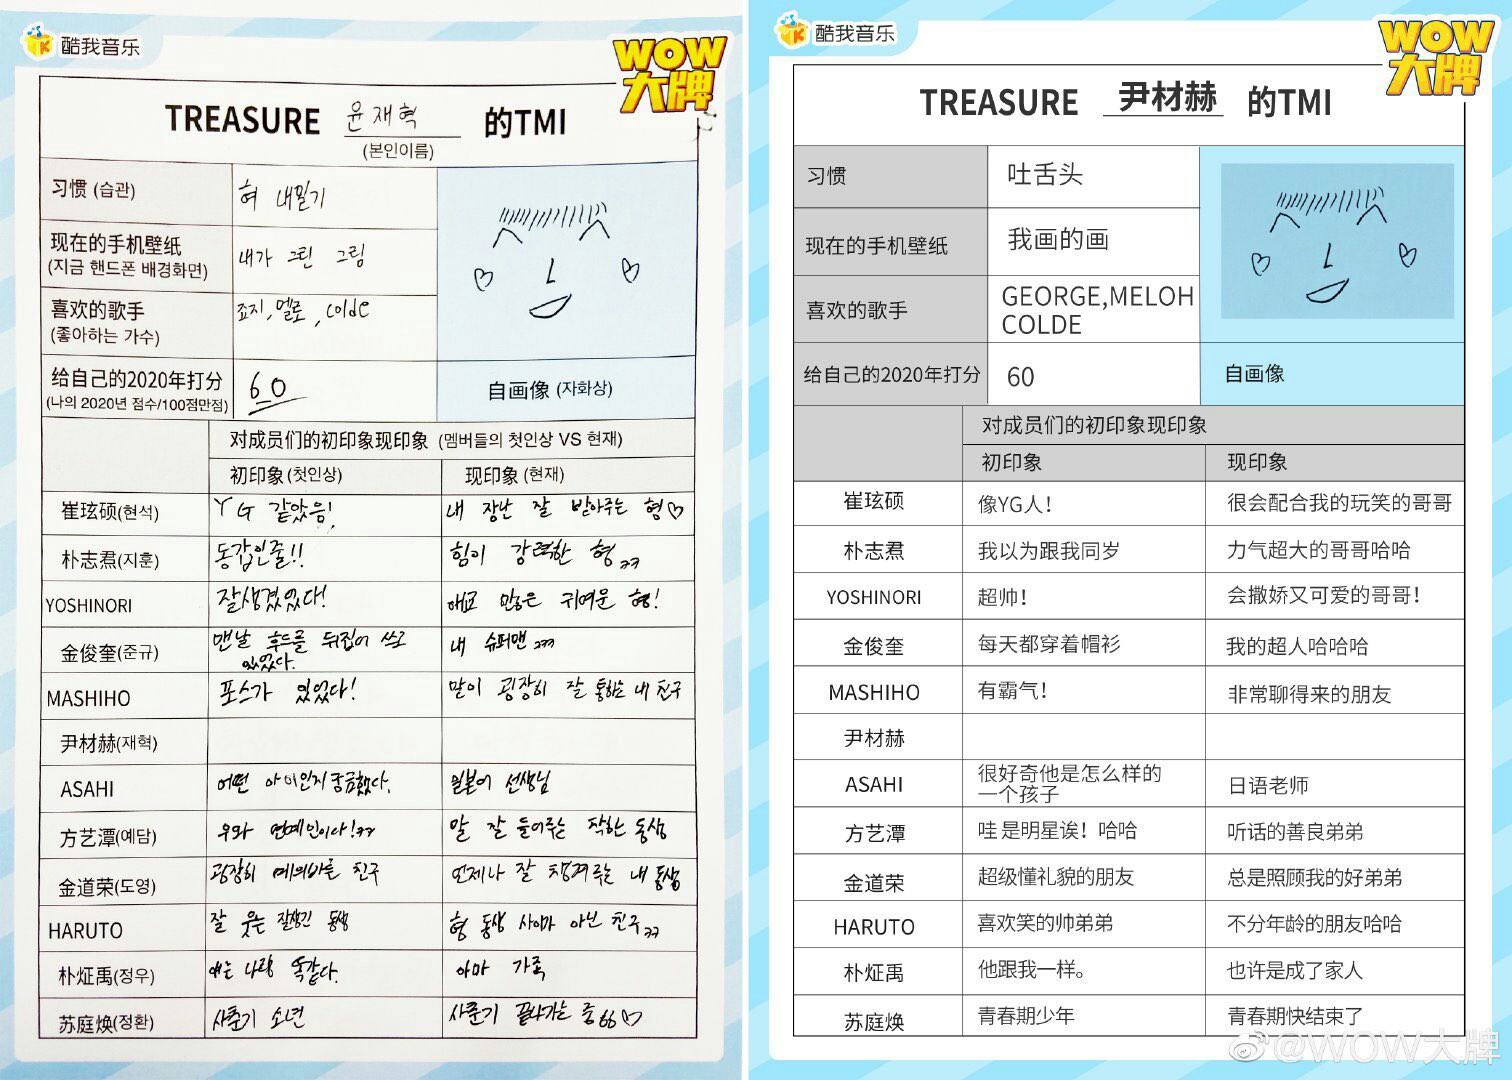 酷我音乐
WOW
大牌
TREASURE 윤재혁 的TMI
(본인이름)
习惯 (습관)
혀 내밀기
现在的手机壁纸
(지금 핸드폰 배경화면)
내가 그린 그림
喜欢的歌手
(좋아하는 가수)
죠지, 멜로, colde
给自己的2020年打分
(나의 2020년 점수/100점만점)
60
自画像 (자화상)
对成员们的初印象现印象 (멤버들의 첫인상 VS 현재)
初印象 (첫인상)
现印象 (현재)
崔玹硕(현석)
YG 같았음!
내 장난 잘 받아주는 형♡
朴志焄(지훈)
동갑인줄!!
힘이 강력한 형 ㅋㅋ
YOSHINORI
잘생겼었다!
애교 많은 귀여운 형!
金俊奎(준규)
맨날 후드를 뒤집어 쓰고
있었다.
내 슈퍼맨 ㅋㅋㅋ
MASHIHO
포스가 있었다!
말이 굉장히 잘 통하는 내 친구
尹材赫(재혁)
ASAHI
어떤 아이인지 궁금했다.
일본어 선생님
方艺潭(예담)
우와 연예인이다!ㅋㅋ
말 잘 들어주는 착한 동생
金道荣(도영)
굉장히 예의바른 친구
언제나 잘 챙겨주는 내 동생
HARUTO
잘 웃는 잘생긴 동생
형 동생 사이가 아닌 친구ㅋㅋ
朴炡禹(정우)
얘는 나랑 똑같다.
아마 가족
苏庭焕(정환)
사춘기 소년
사춘기 끝나가는 중 ♡
酷我音乐
WOW
大牌
TREASURE 尹材赫 的TMI
习惯
吐舌头
现在的手机壁纸
我画的画
喜欢的歌手
GEORGE,MELOH
COLDE
给自己的2020年打分
60
自画像
对成员们的初印象现印象
初印象
现印象
崔玹硕
像YG人！
很会配合我的玩笑的哥哥
朴志焄
我以为跟我同岁
力气超大的哥哥哈哈
YOSHINORI
超帅！
会撒娇又可爱的哥哥！
金俊奎
每天都穿着帽衫
我的超人哈哈哈
MASHIHO
有霸气！
非常聊得来的朋友
尹材赫
ASAHI
很好奇他是怎么样的
一个孩子
日语老师
方艺潭
哇 是明星诶！哈哈
听话的善良弟弟
金道荣
超级懂礼貌的朋友
总是照顾我的好弟弟
HARUTO
喜欢笑的帅弟弟
不分年龄的朋友哈哈
朴炡禹
他跟我一样。
也许是成了家人
苏庭焕
青春期少年
青春期快结束了
@WOW大牌